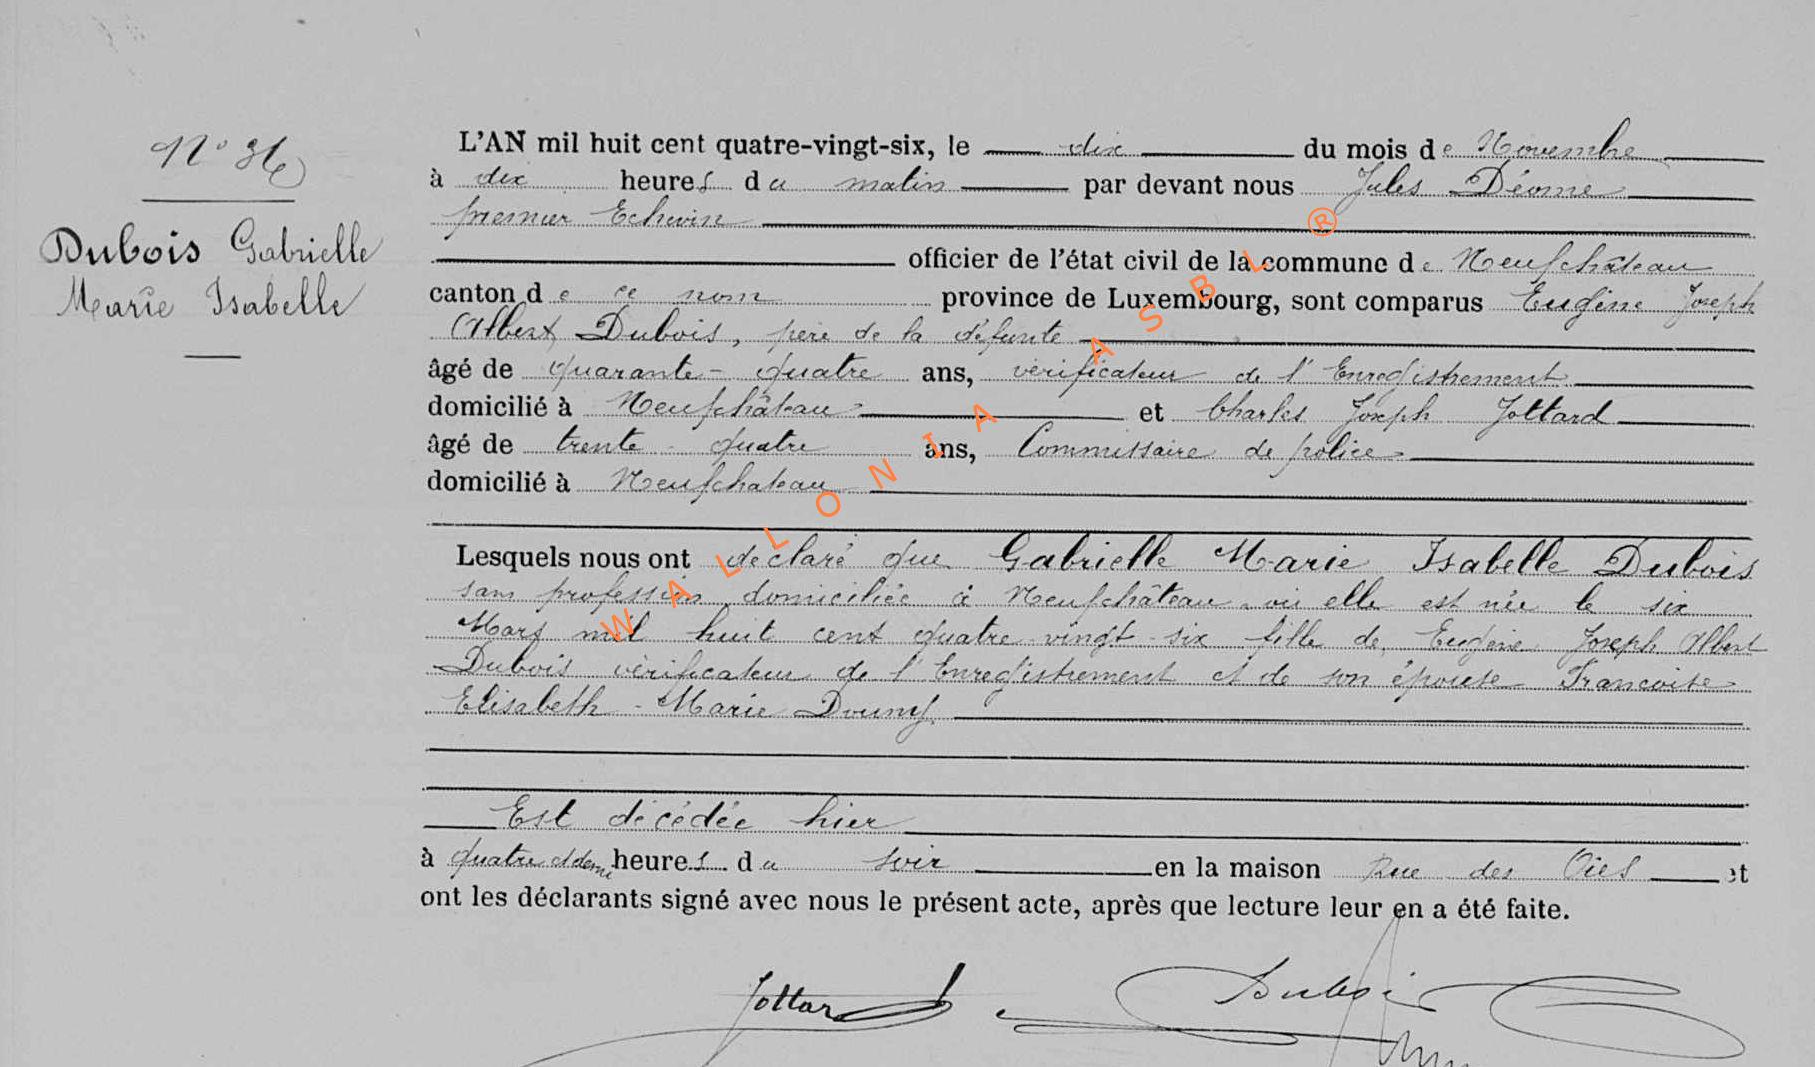 N° 36
Dubois Gabrielle
Marie Isabelle
L'AN mil huit cent quatre-vingt-six, le dix du mois de Novembre
à dix heures du matin par devant nous Jules Déome
premier Echevin
officier de l'état civil de la commune de Neufchâteau
canton de ce nom province de Luxembourg, sont comparus Eugène Joseph
Albert Dubois, père de la défunte
âgé de quarante-quatre ans, vérificateur de l'Enregistrement
domicilié à Neufchâteau et Charles Joseph Jottard
âgé de trente-quatre ans, Commissaire de police
domicilié à Neufchateau
Lesquels nous ont déclaré que Gabrielle Marie Isabelle Dubois
sans profession domiciliée à Neufchâteau où elle est née le six
Mars mil huit cent quatre-vingt-six fille de Eugène Joseph Albert
Dubois vérificateur de l'Enregistrement et de son épouse Francoise
Elisabeth-Marie
Est décédée hier
à quatre et demi heures du soir en la maison Rue des Oies et
ont les déclarants signé avec nous le présent acte, après que lecture leur en a été faite.
Jottard Dubois
WALLONIA ASBL ®